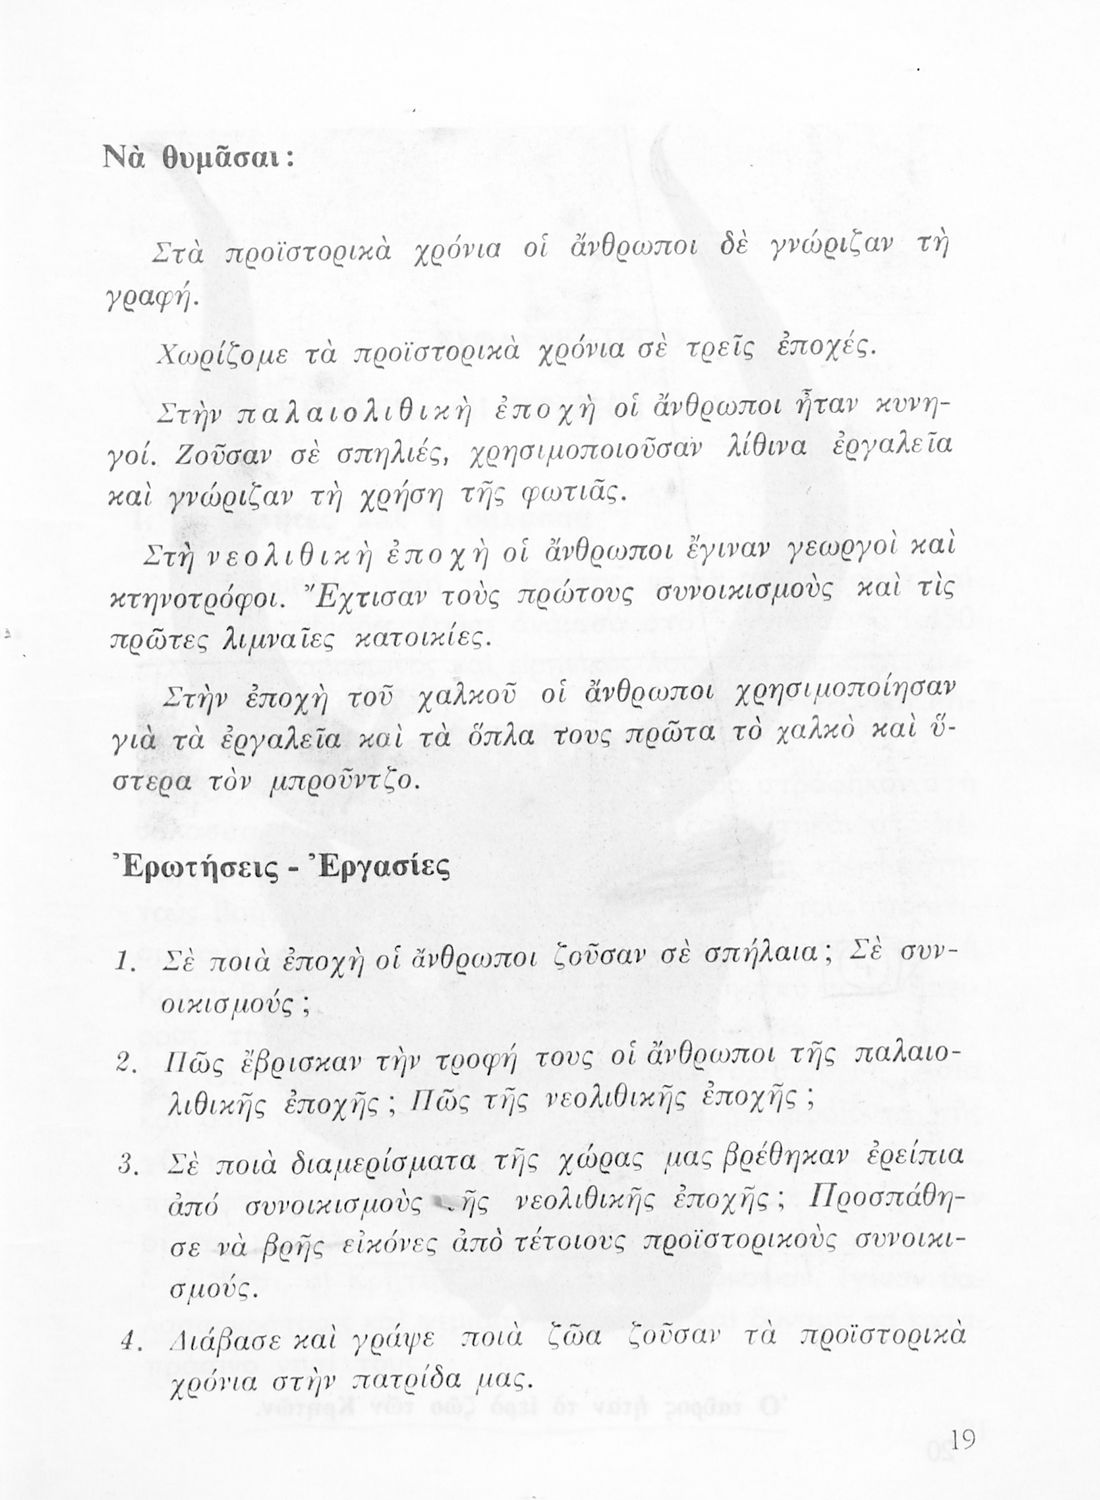 Νὰ θυμᾶσαι:
Στὰ προϊστορικὰ χρόνια οἱ ἄνθρωποι δὲ γνώριζαν τὴ
γραφή.
Χωρίζομε τὰ προϊστορικὰ χρόνια σὲ τρεῖς ἐποχές.
Στὴν παλαιολιθικὴ ἐποχὴ οἱ ἄνθρωποι ἦταν κυνη-
γοί. Ζοῦσαν σὲ σπηλιές, χρησιμοποιοῦσαν λίθινα ἐργαλεῖα
καὶ γνώριζαν τὴ χρήση τῆς φωτιᾶς.
Στὴ νεολιθικὴ ἐποχὴ οἱ ἄνθρωποι ἔγιναν γεωργοὶ καὶ
κτηνοτρόφοι. Ἔχτισαν τοὺς πρώτους συνοικισμοὺς καὶ τὶς
πρῶτες λιμναῖες κατοικίες.
Στὴν ἐποχὴ τοῦ χαλκοῦ οἱ ἄνθρωποι χρησιμοποίησαν
γιὰ τὰ ἐργαλεῖα καὶ τὰ ὅπλα τους πρῶτα τὸ χαλκὸ καὶ ὕ-
στερα τὸν μπροῦντζο.
Ἐρωτήσεις - Ἐργασίες
1. Σὲ ποιὰ ἐποχὴ οἱ ἄνθρωποι ζοῦσαν σὲ σπήλαια; Σὲ συν-
οικισμούς;
2. Πῶς ἔβρισκαν τὴν τροφή τους οἱ ἄνθρωποι τῆς παλαιο-
λιθικῆς ἐποχῆς; Πῶς τῆς νεολιθικῆς ἐποχῆς;
3. Σὲ ποιὰ διαμερίσματα τῆς χώρας μας βρέθηκαν ἐρείπια
ἀπό συνοικισμοὺς ῆς νεολιθικῆς ἐποχῆς; Προσπάθη-
σε νὰ βρῆς εἰκόνες ἀπὸ τέτοιους προϊστορικοὺς συνοικι-
σμούς.
4. Διάβασε καὶ γράψε ποιὰ ζῶα ζοῦσαν τὰ προϊστορικὰ
χρόνια στὴν πατρίδα μας.
19